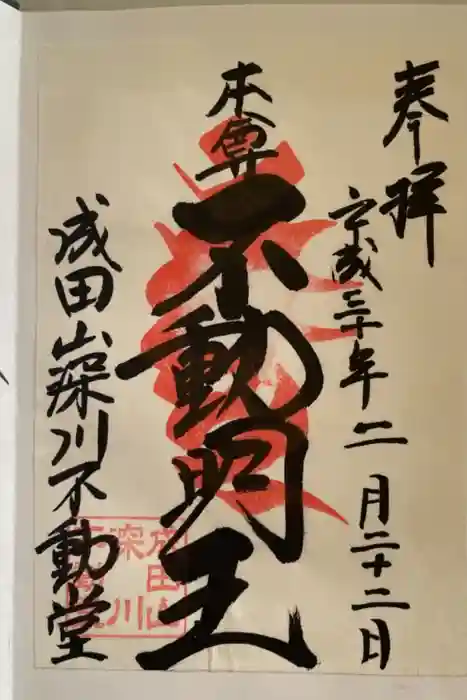 奉拝
平成三十年二月二十二日
本尊
不動明王
成田山深川不動堂
成田山
深川
不動堂